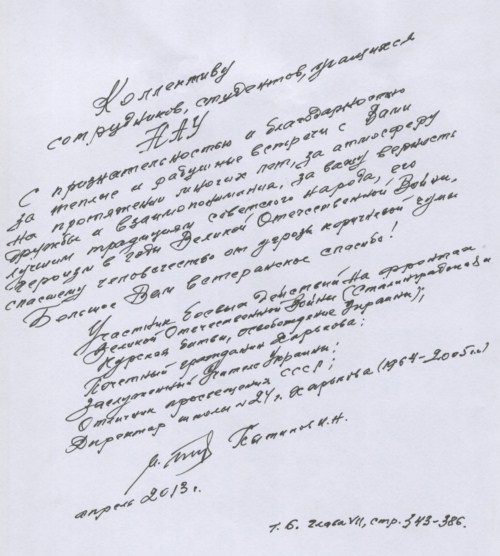 Коллективу
сотрудников, студентов, учащихся
НАУ
С признательностью и благодарностью
за теплые и радушные встречи с Вами
на протяжении многих лет, за атмосферу
дружбы и взаимопонимания, за вашу верность
лучшим традициям советского народа, его
героизм в годы Великой Отечественной Войны,
спасшему человечество от угрозы коричневой чумы
Большое Вам ветеранское спасибо!
Участник боевых действий на фронтах
Великой Отечественной Войны (Сталинградской и
Курской битвы, освобождение Украины);
Почетный гражданин Харькова;
Заслуженный Учитель Украины;
Отличник просвещения СССР;
Директор школы №27 г. Харькова (1964-2005гг.)
И.Н.
апрель 2013г.
т. 6. глава VII, стр. 343-386.